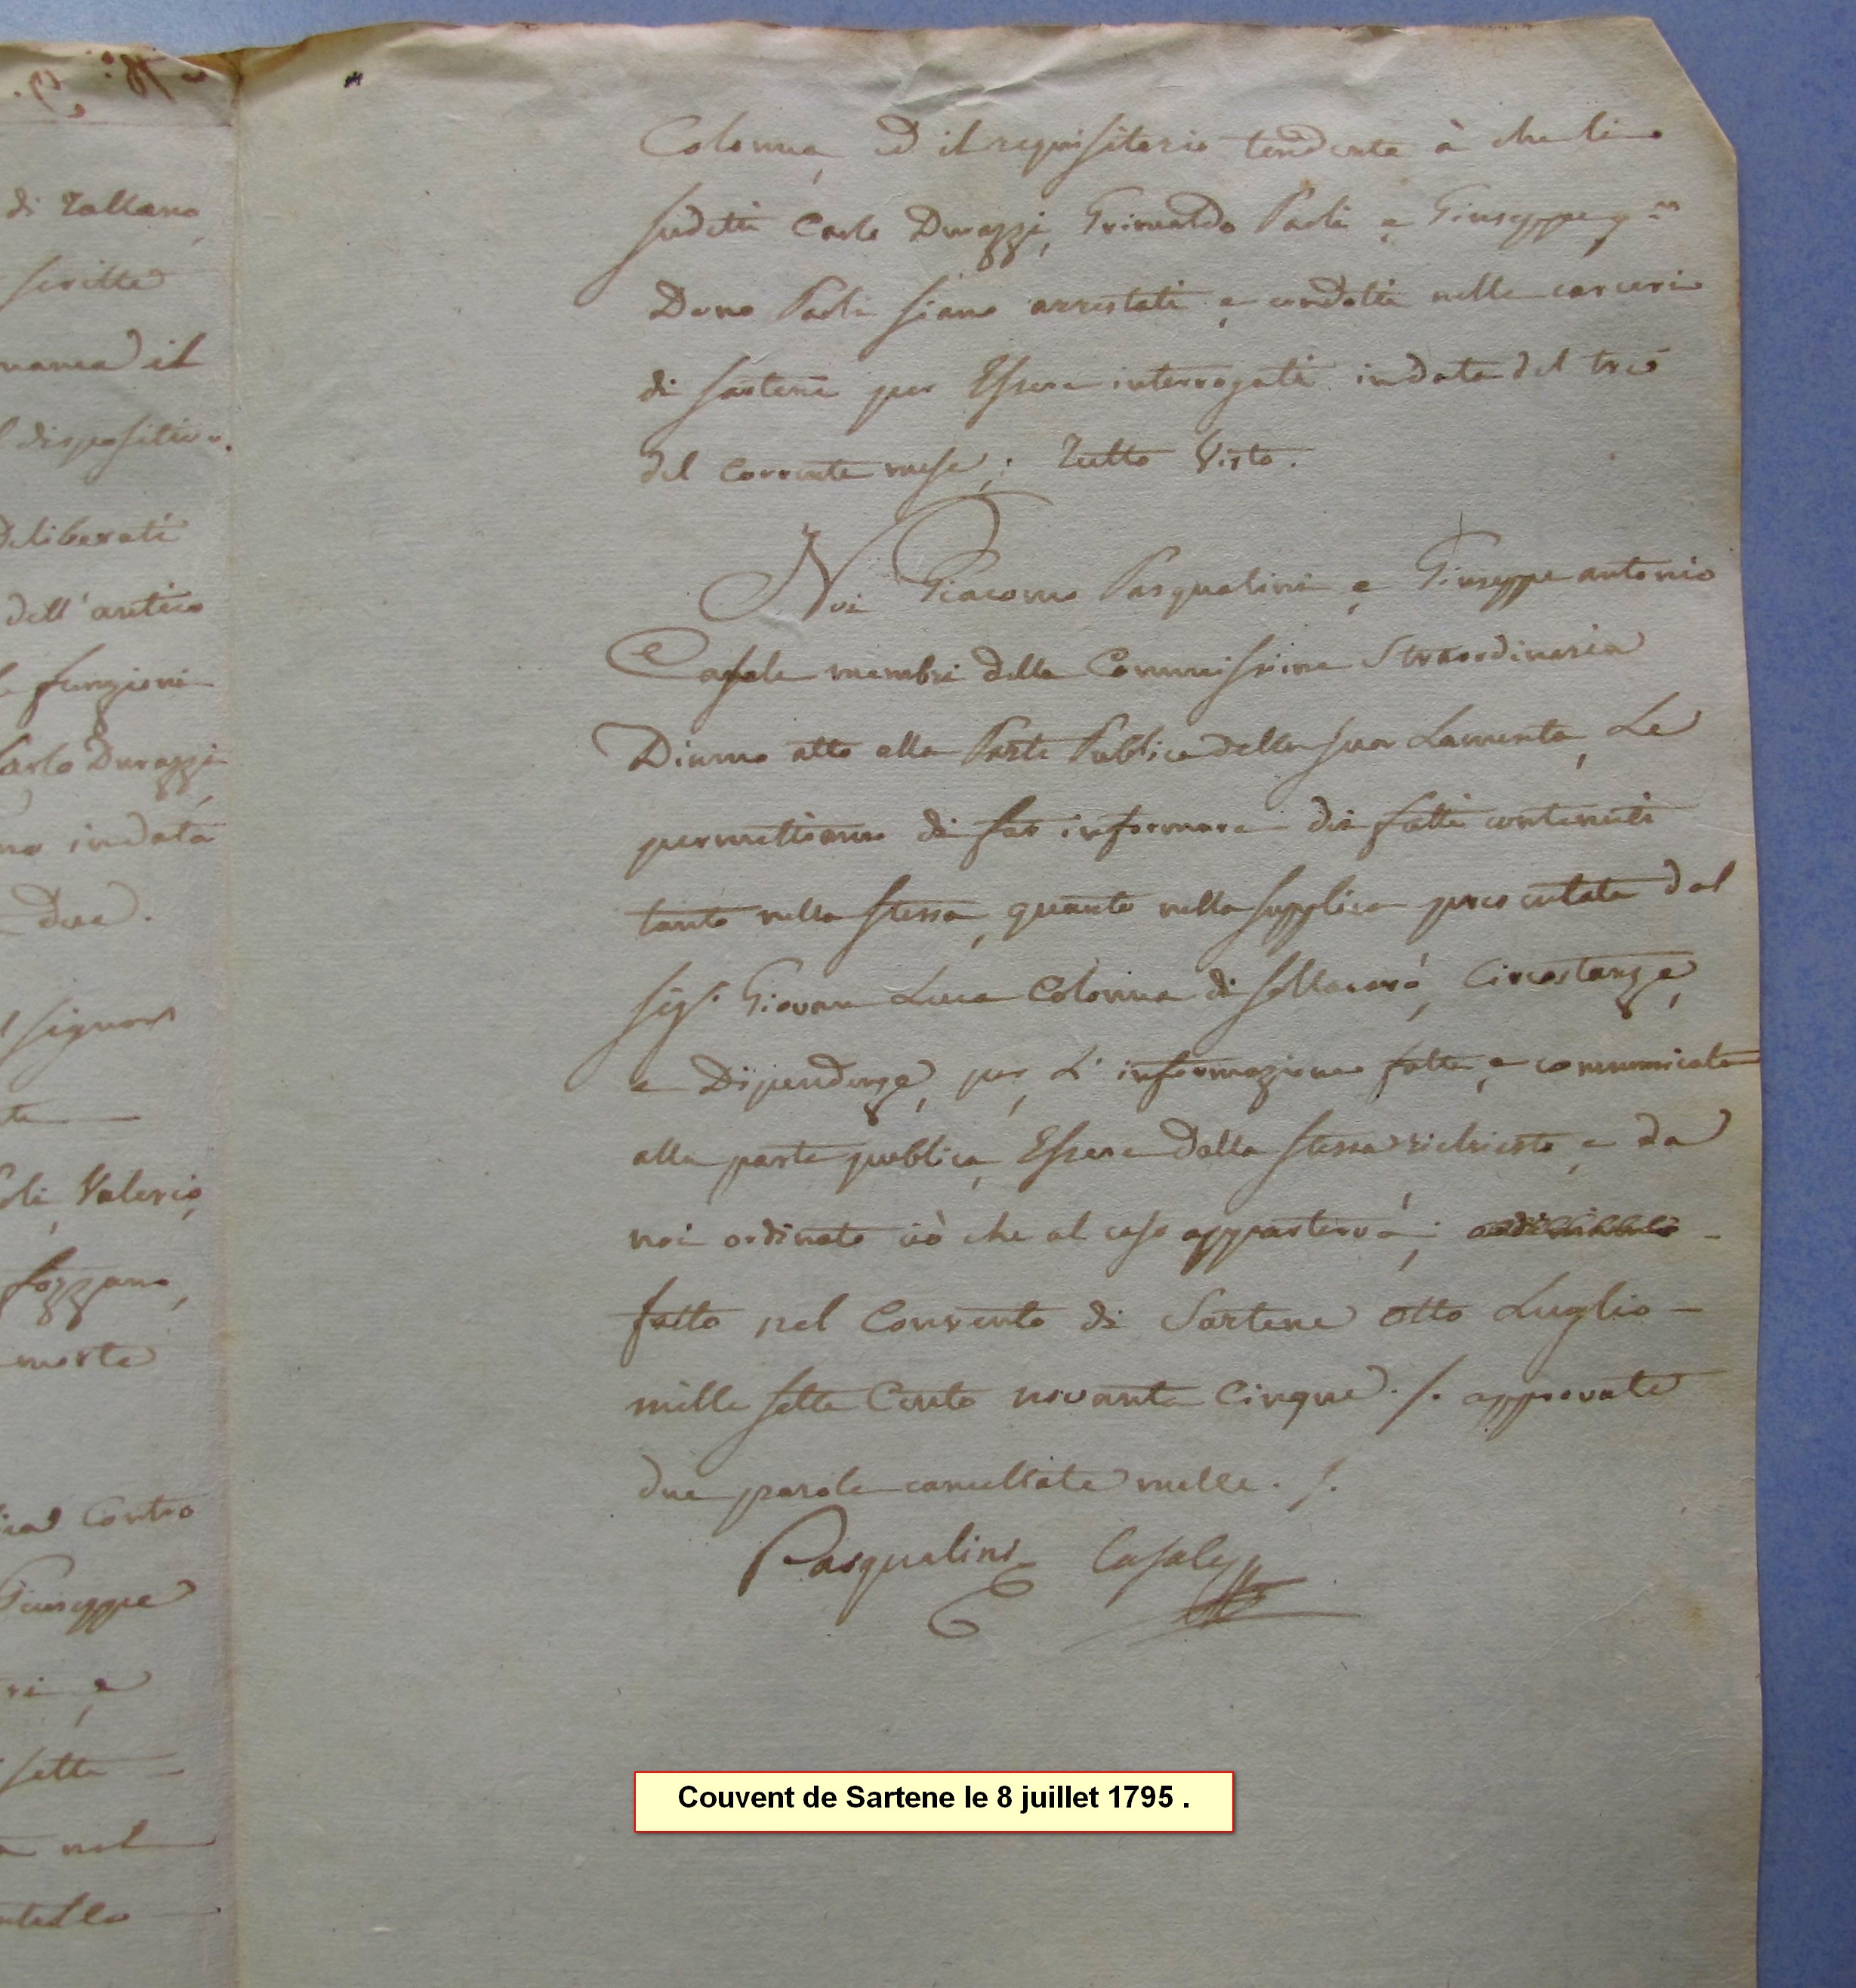 di Tallano,
scritte
il
dispositivo.
deliberati
dell'antico
funzioni
Carlo Durazzi,
in data
due.
signor
Valerio,
fozzano,
morte
Contro
Giuseppe
e
sette
nel
Colonna, ed il requisitorio tendente à che li
sudetti Carlo Durazzi, Grimaldo Paoli e Giuseppe q.m
Dono Paoli siano arrestati, e condotti nelle carceri
di Sartene per Essere interrogati in data del tre
del Corrente mese; Tutto Visto.
Noi Giacomo Pasqualini, e Giuseppe antonio
Casale membri della Commissione Straordinaria
Diamo atto alla Parte Publica della sua Lamenta, Le
permettiamo di far informare dei fatti contenuti
tanto nella stessa, quanto nella supplica presentata dal
sig.r Giovan Luca Colonna di sollacarò, Circostanze,
e Dipendenze, per, L'informazione fatta, e communicata
alla parte publica, Essere dalla stessa richiesto, e da
noi ordinato ciò che al caso apparterrà;
fatto nel Convento di Sartene otto Luglio
mille sette Cento novanta Cinque ./. approvate
due parole cancellate nulle ./.
Pasqualini Casale
Couvent de Sartene le 8 juillet 1795 .